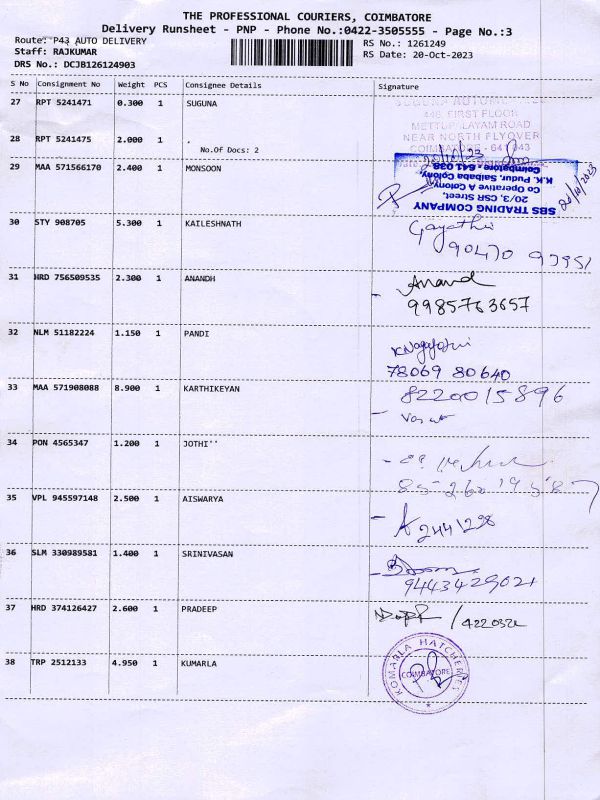 THE PROFESSIONAL COURIERS, COIMBATORE
Delivery Runsheet - PNP - Phone No.:0422-3505555 - Page No.:3
Route: P43 AUTO DELIVERY
Staff: RAJKUMAR
DRS No.: DCJB126124903
RS No.: 1261249
RS Date: 20-Oct-2023
S No Consignment No Weight PCS Consignee Details Signature
27 RPT 5241471 0.300 1 SUGUNA
446, FIRST FLOOR
METTUPALAYAM ROAD
NEAR NORTH FLYOVER
COIMBATORE - 641 043
28 RPT 5241475 2.000 1 .
No.Of Docs: 2
20/10/23
29 MAA 571566170 2.400 1 MONSOON
SBS TRADING COMPANY
20/3, CSR Street,
Co Operative A Colony,
K.K. Pudur, Saibaba Colony,
Coimbatore 641 038
20/10/2023
30 STY 908705 5.300 1 KAILESHNATH
Gayathri
90470 97951
31 HRD 756509535 2.300 1 ANANDH
Anand
9985763657
32 NLM 51182224 1.150 1 PANDI
78069 80640
33 MAA 571908088 8.900 1 KARTHIKEYAN
8220015896
34 PON 4565347 1.200 1 JOTHI''
35 VPL 945597148 2.500 1 AISWARYA
2441298
36 SLM 330989581 1.400 1 SRINIVASAN
37 HRD 374126427 2.600 1 PRADEEP
38 TRP 2512133 4.950 1 KUMARLA
KOMARLA HATCHERIES
COIMBATORE